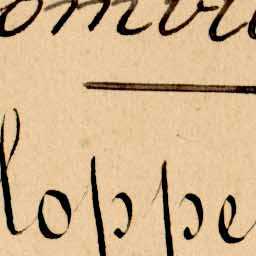 ombr
loppe